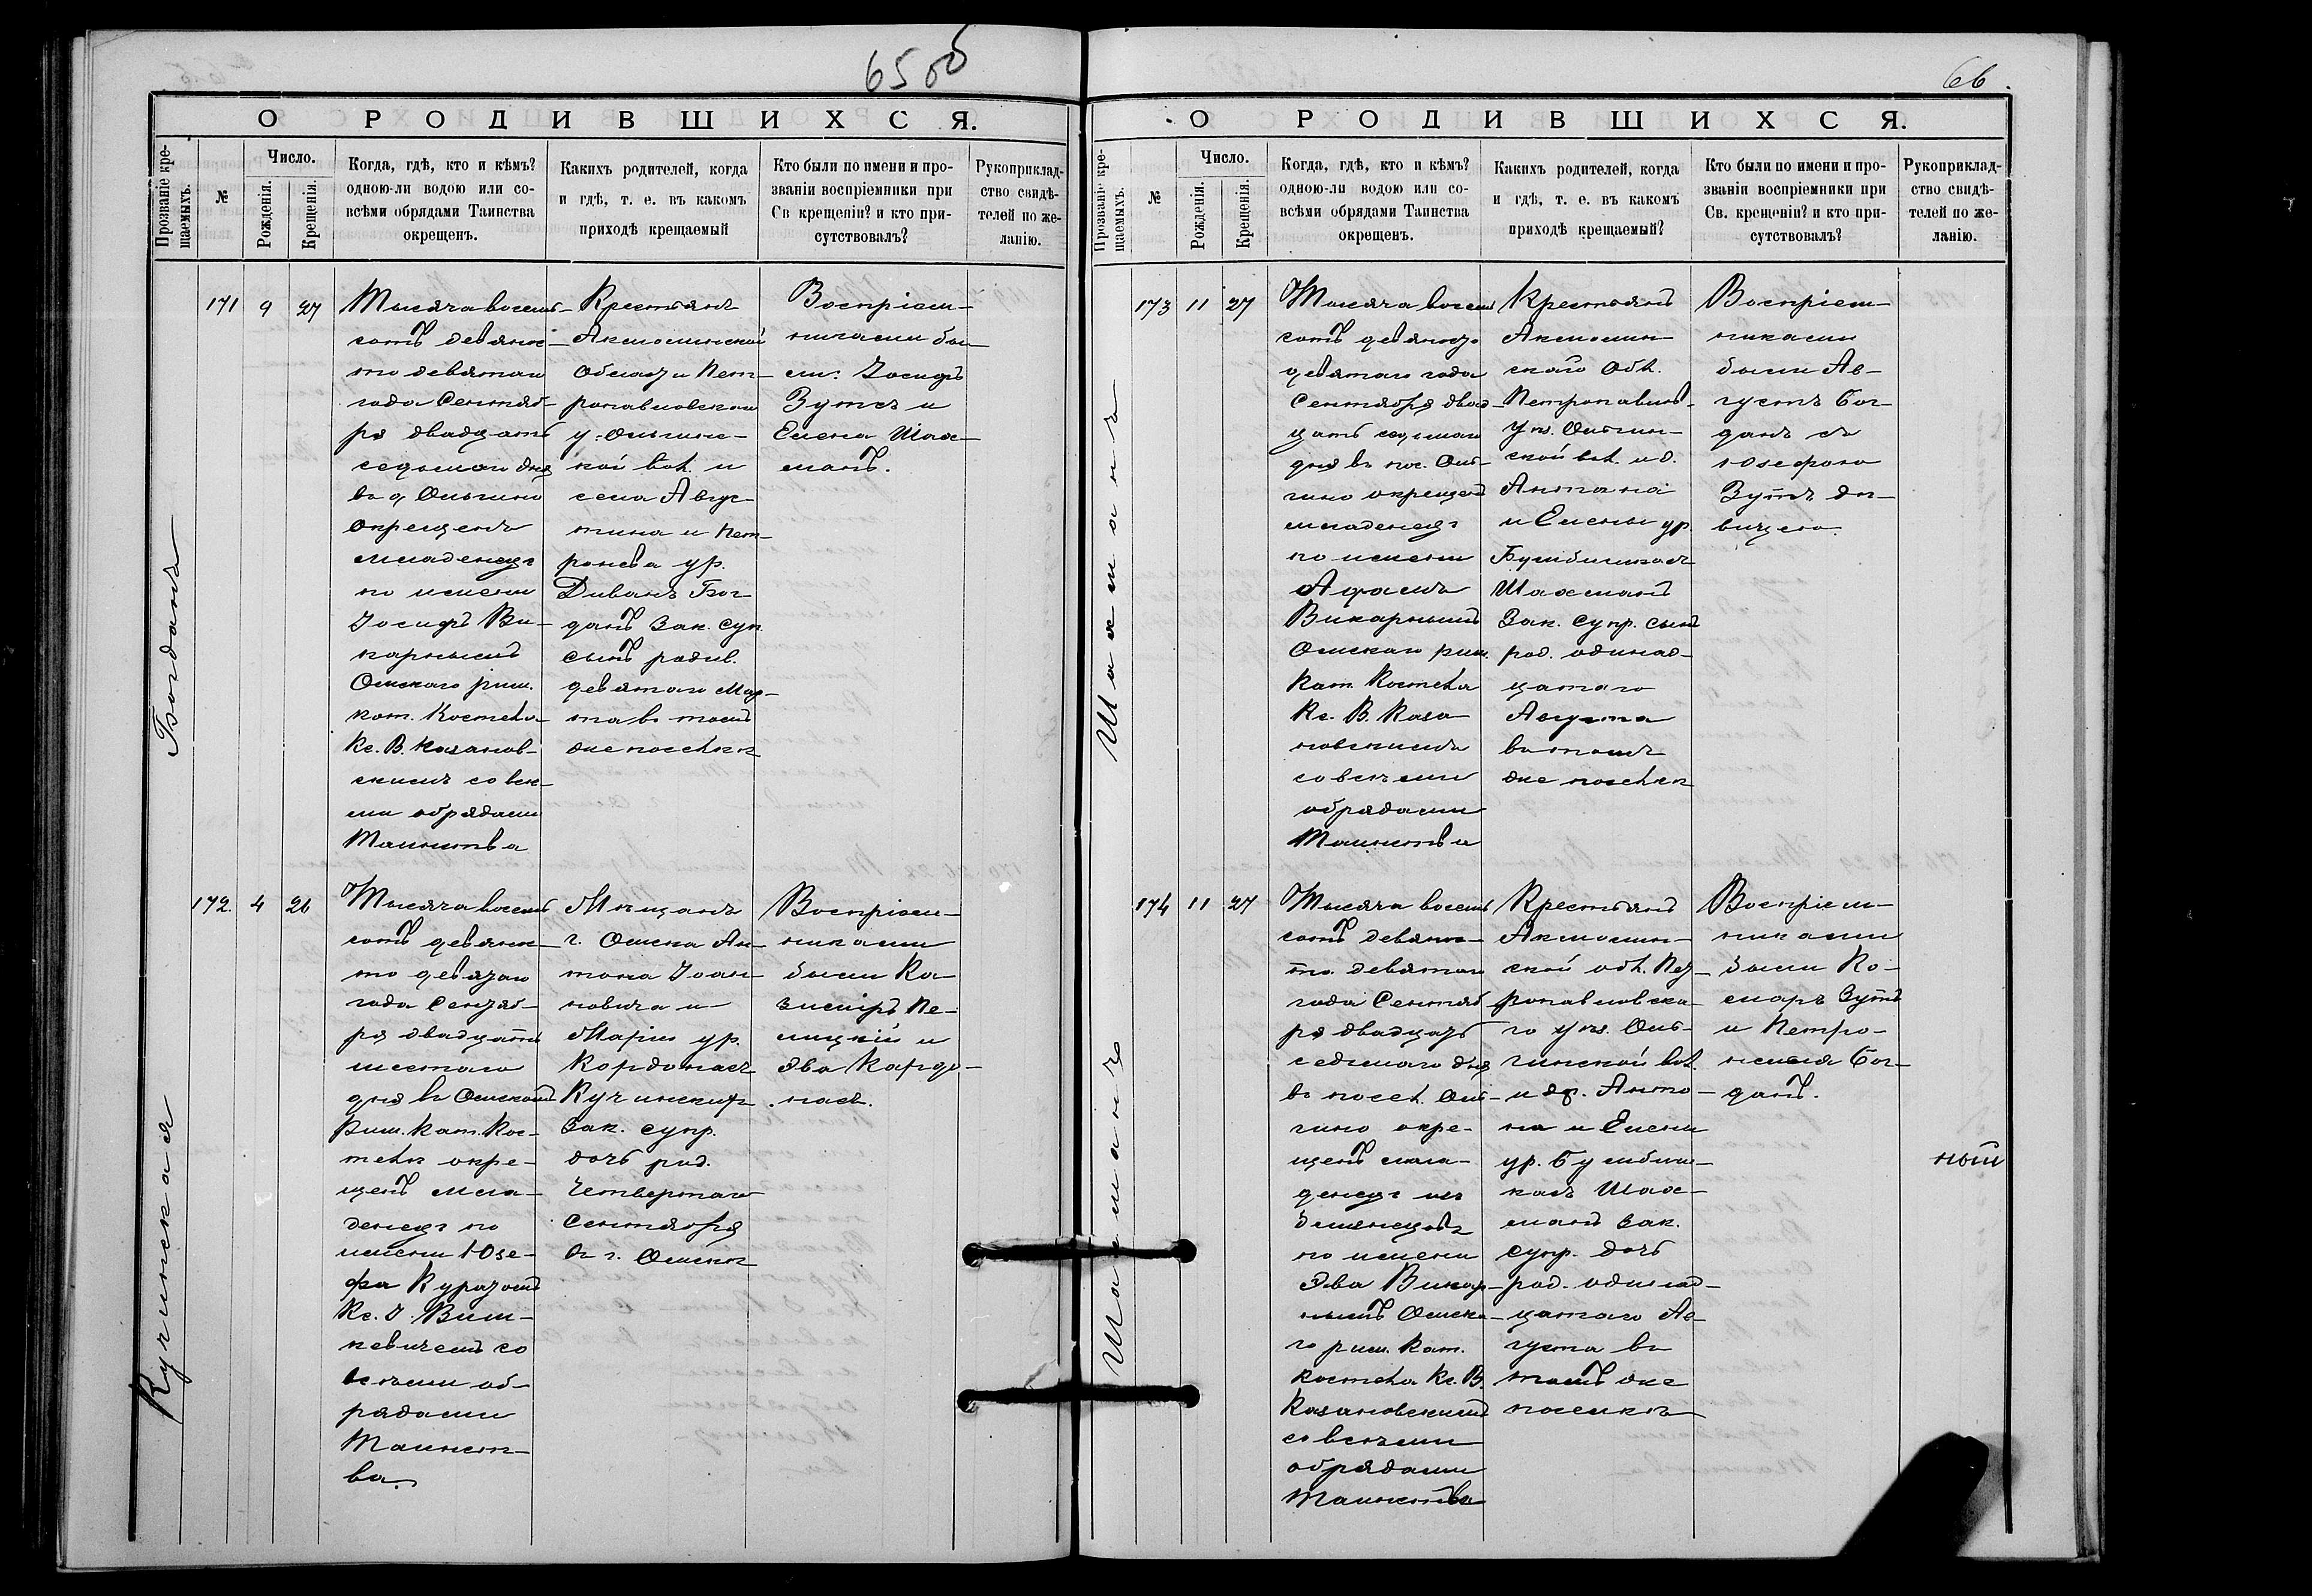 65 об
О РОДИВШИХСЯ.
Прозваніе кре-
щаемыхъ.
№
Число.
Рожденія.
Крещенія.
Когда, гдѣ, кто и кѣмъ?
одною-ли водою или со-
всѣми обрядами Таинства
окрещенъ.
Какихъ родителей, когда
и гдѣ, т. е. въ какомъ
приходѣ крещаемый
Кто были по имени и про-
званіи воспріемники при
Св крещеніи? и кто при-
сутствовалъ?
Рукоприклад-
ство свидѣ-
телей по же-
ланію.
Богданъ
171 9 27
Тысяча восемь-
сотъ девяно-
то девятаго
года Сентяб-
ря двадцать
седьмаго дня
въ Ольгино
окрещенъ
младенецъ
по имени
Іосифъ Ви-
карнымъ
Омскаго рим.
кат. Костела
Кс. В. Казанов-
скимъ со всѣ-
ми обрядами
Таинства
Крестьянъ
Акмолинской
Области Пет-
ропавловскаго
у. Ольгинс-
кой вол. и
села Авгус-
тина и Пет-
ронела ур.
Диванъ Бог-
данъ Зак. суп.
сынъ родив.
девятаго Мар-
та въ томъ
же поселкѣ
Воспріем-
никами бы-
ли: Іосифъ
Зутъ и
Елена Шах-
манъ.
Кучинская
172. 4 26
Тысяча восемь
сотъ девяно-
то девятаго
года Сентяб-
ря двадцать
шестаго
дня въ Омскомъ
Рим. кат. Кос-
телѣ окре-
щенъ мла-
денецъ по
имени Юзе-
фа Куратомъ
Кс. І. Биш-
кевичемъ со
всѣми об-
рядами
Таинст-
ва.
Мѣщанъ
г. Омска Ан-
тона Іоан-
новича и
Маріи ур.
Кордонасъ
Кучинскихъ
Зак. супр.
дочь род.
Четвертаго
Сентября
въ г. Омскѣ
Воспріем-
никами
были Ка-
зиміръ Пе-
лицкій и
Эва Кардо-
насъ.
66.
О РОДИВШИХСЯ.
Прозваніе кре-
щаемыхъ.
№
Число.
Рожденія.
Крещенія.
Когда, гдѣ, кто и кѣмъ?
одною-ли водою или со-
всѣми обрядами Таинства
окрещенъ.
Какихъ родителей, когда
и гдѣ, т. е. въ какомъ
приходѣ крещаемый?
Кто были по имени и про-
званіи воспріемники при
Св. крещеніи? и кто при-
сутствовалъ?
Рукоприклад-
ство свидѣ-
телей по же-
ланію.
Шахманъ
173 11 27
Тысяча восемь
сотъ девяносто
девятаго года
Сентября двад-
цать седьмаго
дня въ пос. Оль-
гино окрещенъ
младенецъ
по имени
Адамъ
Викарнымъ
Омскаго рим.
Кат. Костела
Кс. В. Каза
новскимъ
со всѣми
обрядами
Таинства
Крестьянъ
Акмолин-
ской Обл.
Петропавлов.
у. Ольгин-
ской вол. и д.
Антона
и Елены ур.
Бумбликасъ
Шахманъ
Зак. Супр. сынъ
род. одинад-
цатаго
Августа
въ томъ
же поселкѣ
Воспріем-
никами
были Ав-
густъ Бог-
данъ съ
Юзефою
Зутъ дѣ-
вицею.
Шахманъ
174 11 27
Тысяча восемь
сотъ девянос-
то девятаго
года Сентяб
ря двадцать
седьмаго дня
въ посел. Оль-
гино окре-
щенъ мла-
денецъ изъ
близнецовъ
по имени
Эва Викар-
нымъ Омска-
го рим. Кат.
Костела Кс. В.
Казановскимъ
со всѣми
обрядами
Таинства
Крестьянъ
Акмолин-
ской обл. Пет-
ропавловска-
го у. Оль-
гинской вол.
и др. Анто-
на и Елены
ур. Бумбли-
касъ Шах-
манъ Зак.
супр. дочь
род. одинад-
цатаго Ав-
густа въ
томъ же
поселкѣ
Воспріем-
никами
были Ко-
маръ Зутъ
и Петро-
нелія Бог-
данъ.
ный